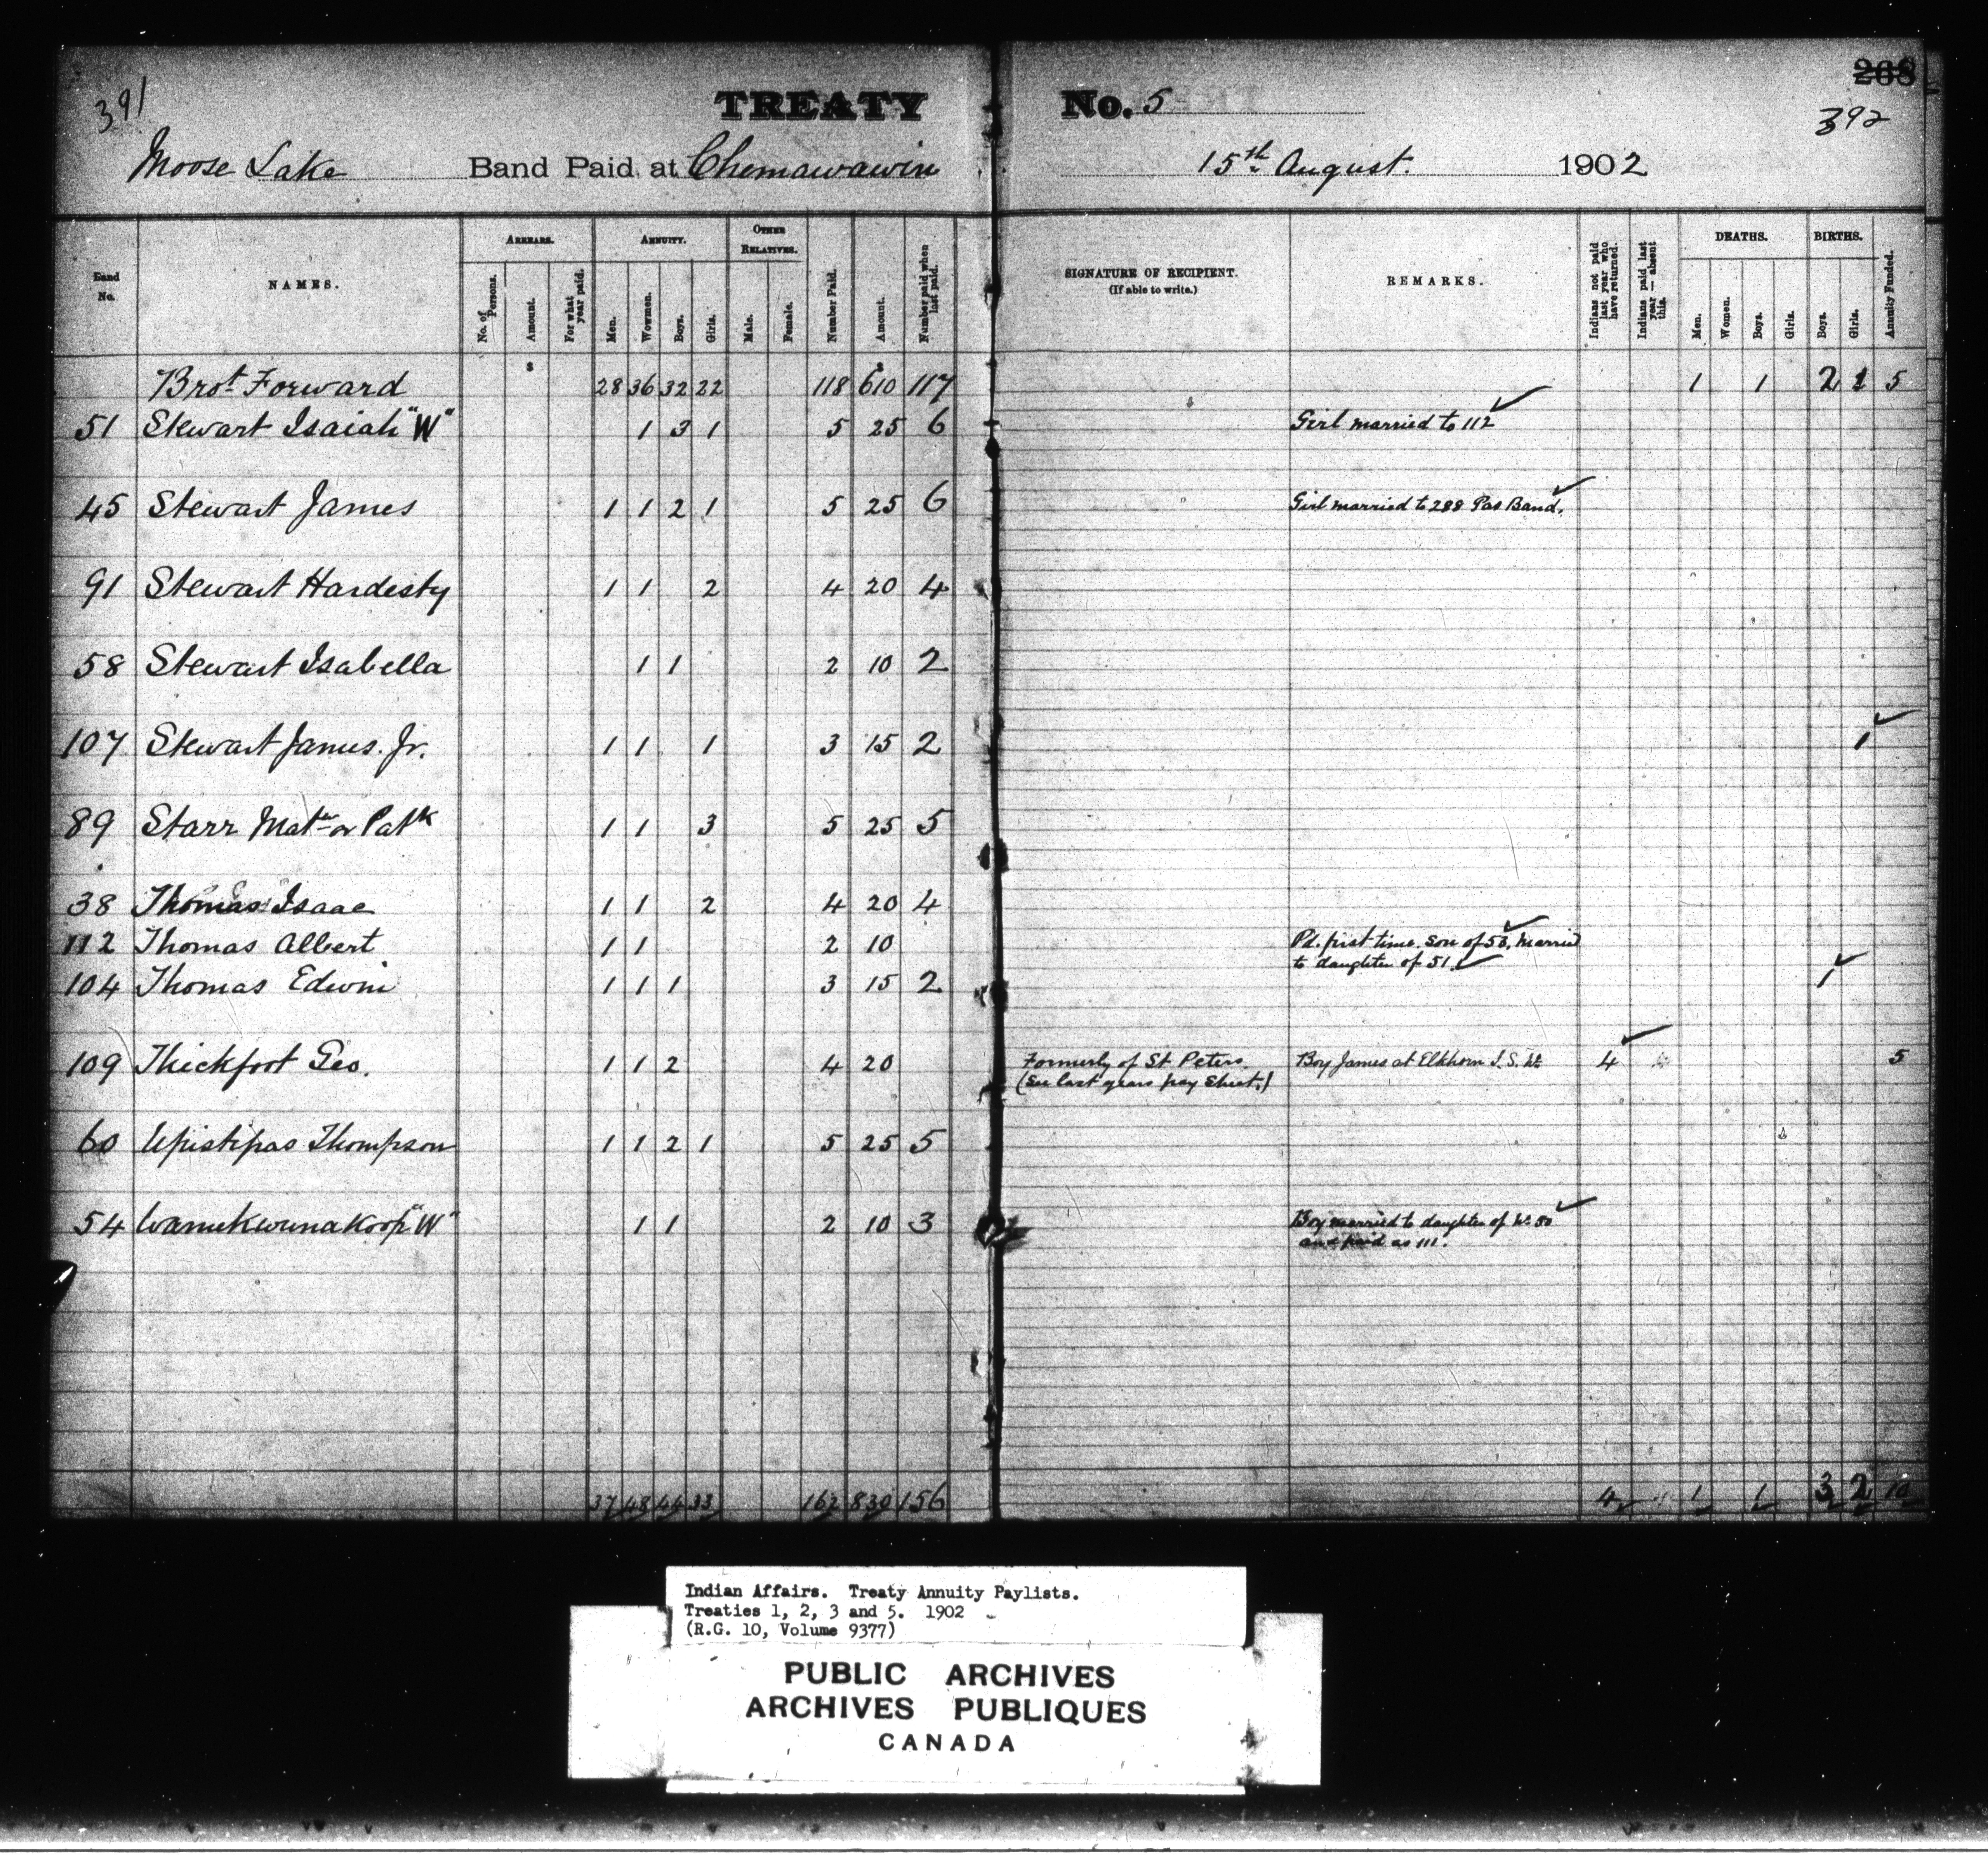 391
TREATY No. 5
268
392
Moose Lake Band Paid at Chemawawin 15th August. 1902
Band No.
NAMES.
ARREARS.
No. of Persons.
Amount.
For what year paid.
ANNUITY.
Men.
Wowmen.
Boys.
Girls.
OTHER RELATIVES.
Male.
Female.
Number Paid.
Amount.
Number paid when last paid.
SIGNATURE OF RECIPIENT.
(If able to write.)
REMARKS.
Indians not paid last year who have returned.
Indians paid last year — absent this.
DEATHS.
Men.
Women.
Boys.
Girls.
BIRTHS.
Boys.
Girls.
Annuity Funded.
Brot Forward 28 36 32 22 118 $610 117 1 1 2 1 5
51 Stewart Isaiah "W" 1 3 1 5 25 6 Girl married to 112
45 Stewart James 1 1 2 1 5 25 6 Girl married to 288 Pas Band.
91 Stewart Hardisty 1 1 2 4 20 4
58 Stewart Isabella 1 1 2 10 2
107 Stewart James. Jr. 1 1 1 3 15 2 1
89 Starr Matw or Patk 1 1 3 5 25 5
38 Thomas Isaac 1 1 2 4 20 4
112 Thomas Albert 1 1 2 10 Pd. first time. Son of 53, Married
to daughter of 51.
104 Thomas Edwin 1 1 1 3 15 2 1
109 Thickfoot Geo. 1 1 2 4 20 Formerly of St Peters. Boy James at Elkhorn I.S. 4 5
(See last years pay Sheet.)
60 Apistipas Thompson 1 1 2 1 5 25 5
54 Wanukwunakoop "W" 1 1 2 10 3 Boy married to daughter of No 50
and paid as 111.
37 48 44 33 162 830 156 4 1 1 3 2 10
Indian Affairs. Treaty Annuity Paylists.
Treaties 1, 2, 3 and 5. 1902
(R.G. 10, Volume 9377)
PUBLIC ARCHIVES
ARCHIVES PUBLIQUES
CANADA